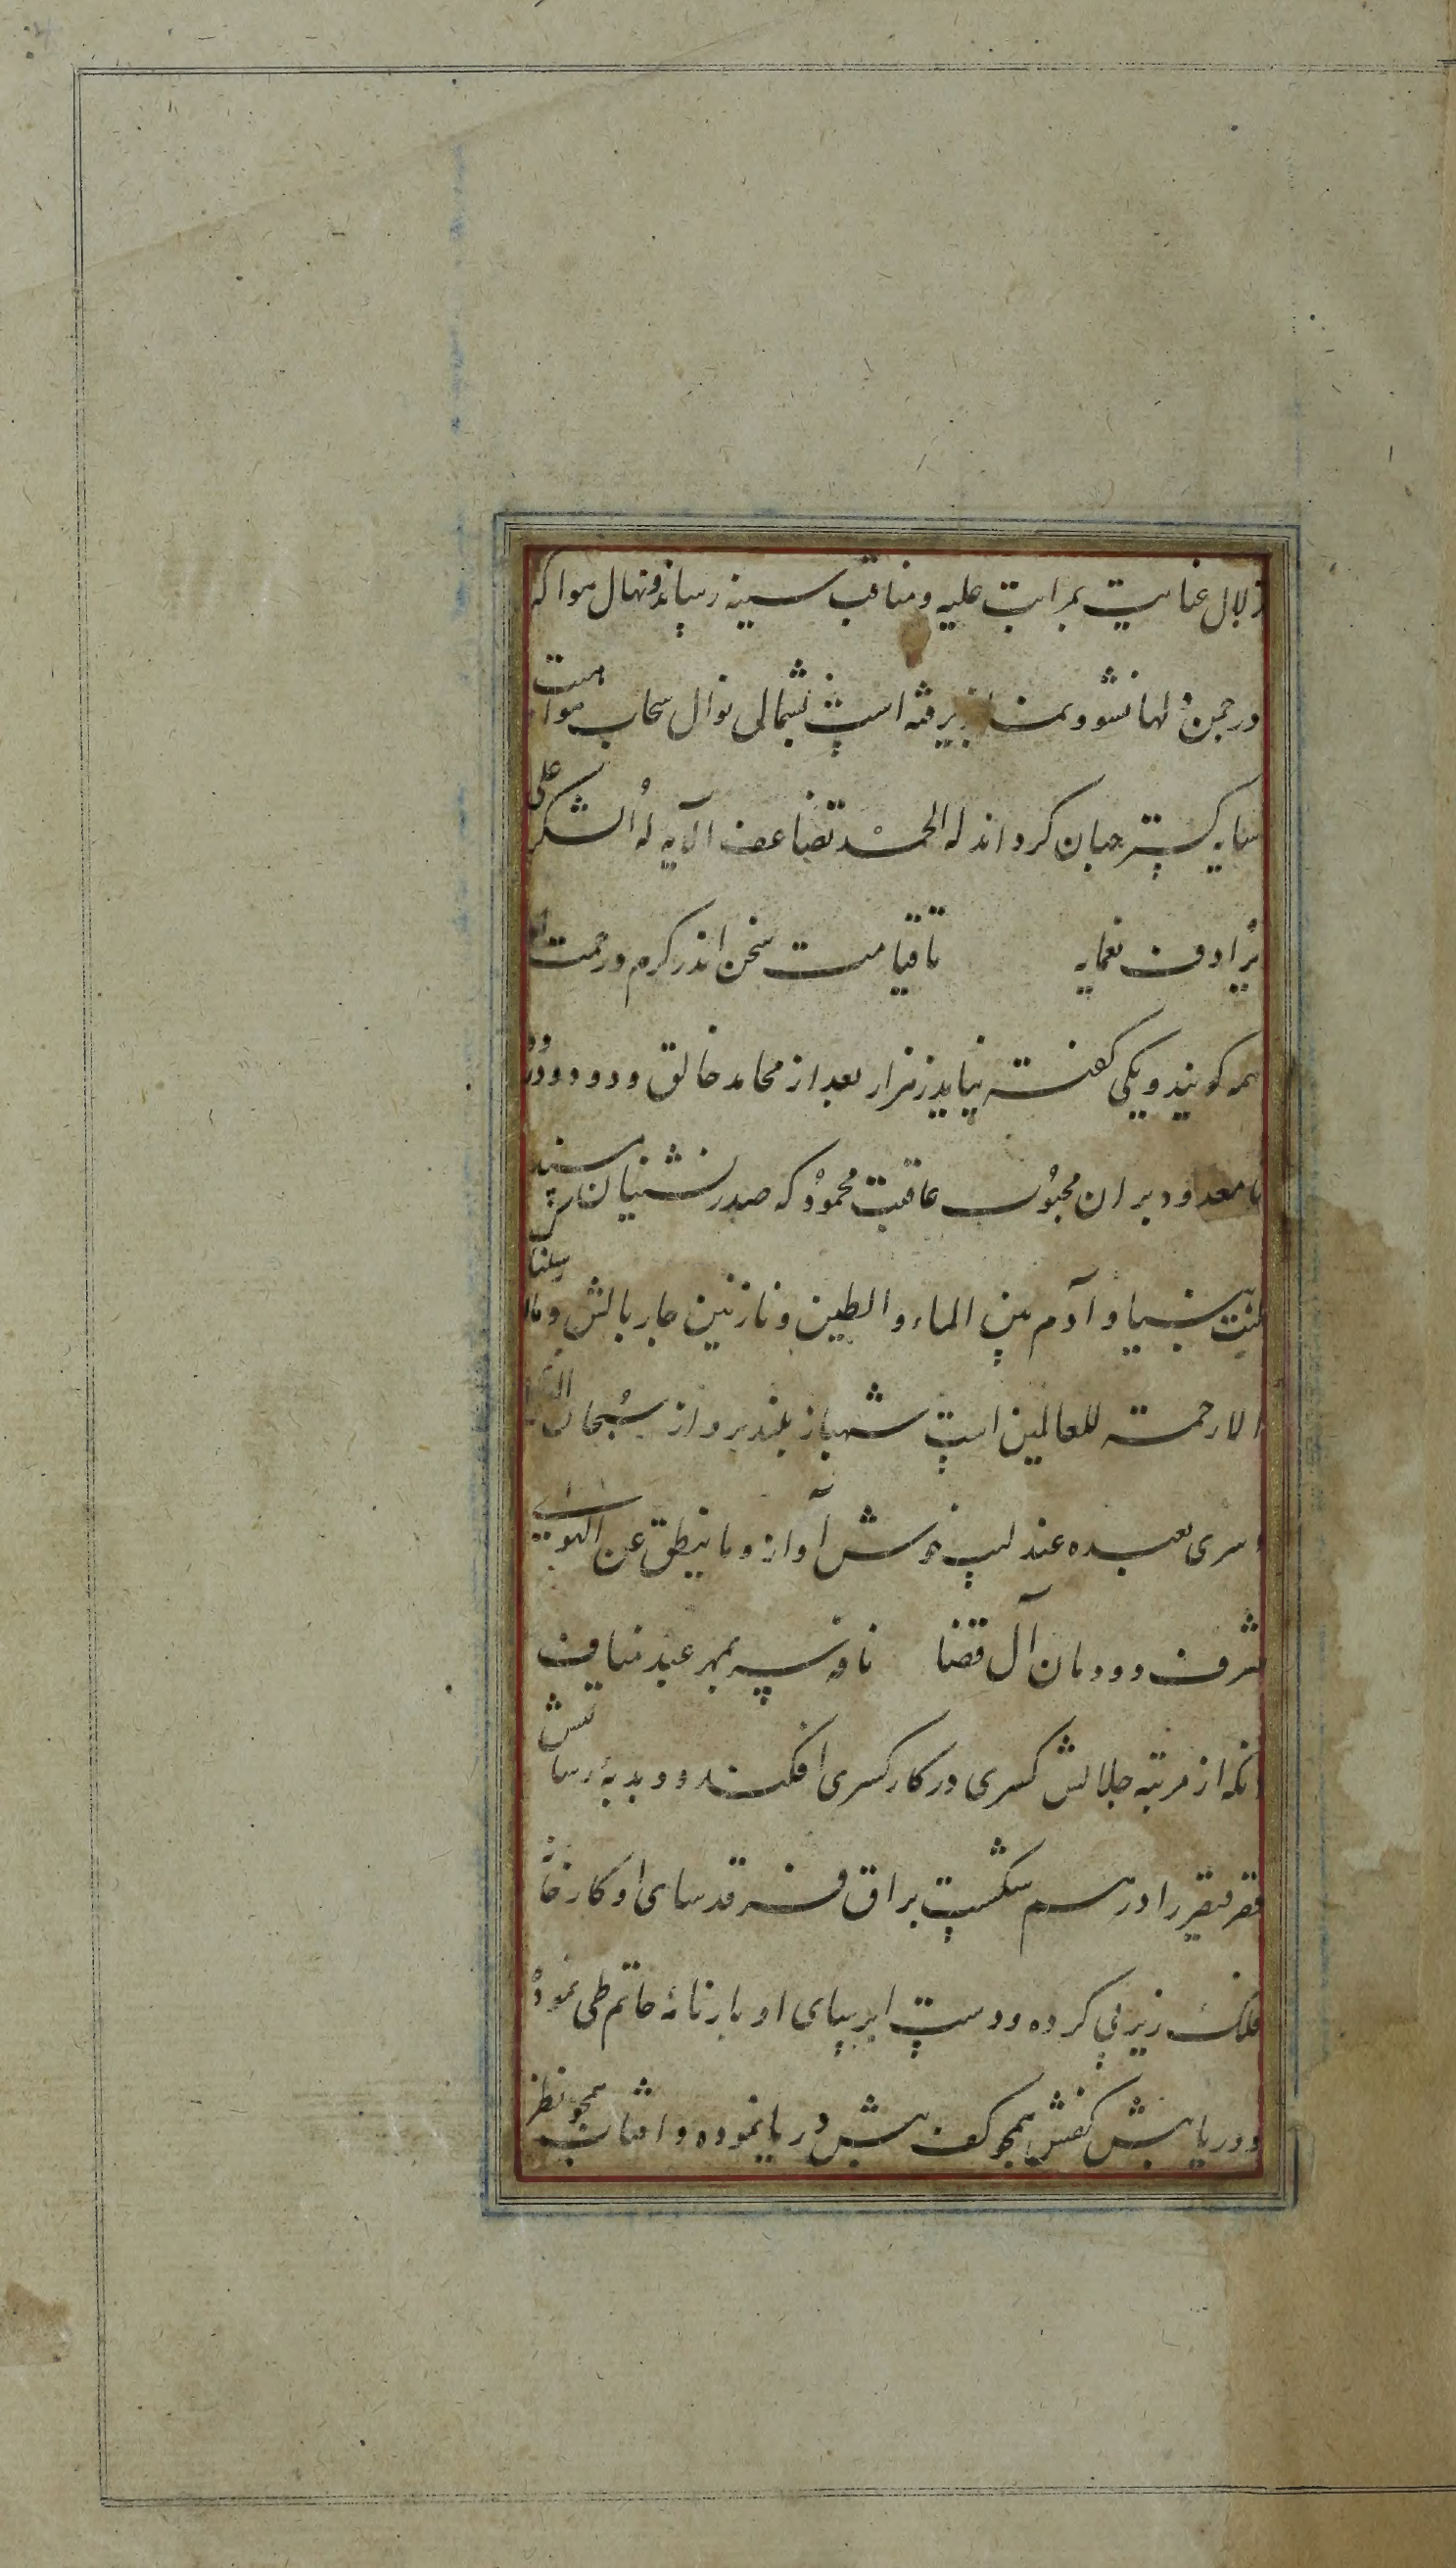 زلال عنایت بمراتب علیه و مناقب سنیه رسانده نهال هوا که
در چمن دلها نشو و نما پذیرفته است بشمالی نوال سحاب مواهبت
سایه گستر جهان کرداند له الحمد تضاعف آلایه له الشکر علی
ترادف نعمایه تا قیامت سخن اندر کرم و رحمت او
همه کویند و یکی کفته نیاید ز هزار بعد از محامد خالق ودود درود
نامعدود بر ان محبوب عاقبت محمود که صدر نشینان مسند
کنت نبیا و آدم بین الماء والطین و نازنین چار بالش و ما ارسلنا
الا رحمة للعالمین است شهباز بلند پرواز سبحان الذی
اسری بعبده عندلیب خوش آواز و ما ینطق عن الهوی
شرف دودمان آل قضا نافه سپهر عبد مناف
آنکه از مرتبه جلالش کسری در کار کسری افکند و دبدبه رسالتش
قصر قیصر را درهم شکست براق فرقدسای او کارخانه
فلک زیر پی کرده و دست ابر بپای او بارنامه حاتم طی نموده
و دریا پیش کفش همچو کف پیش دریا نموده و آفتاب همچو نظر